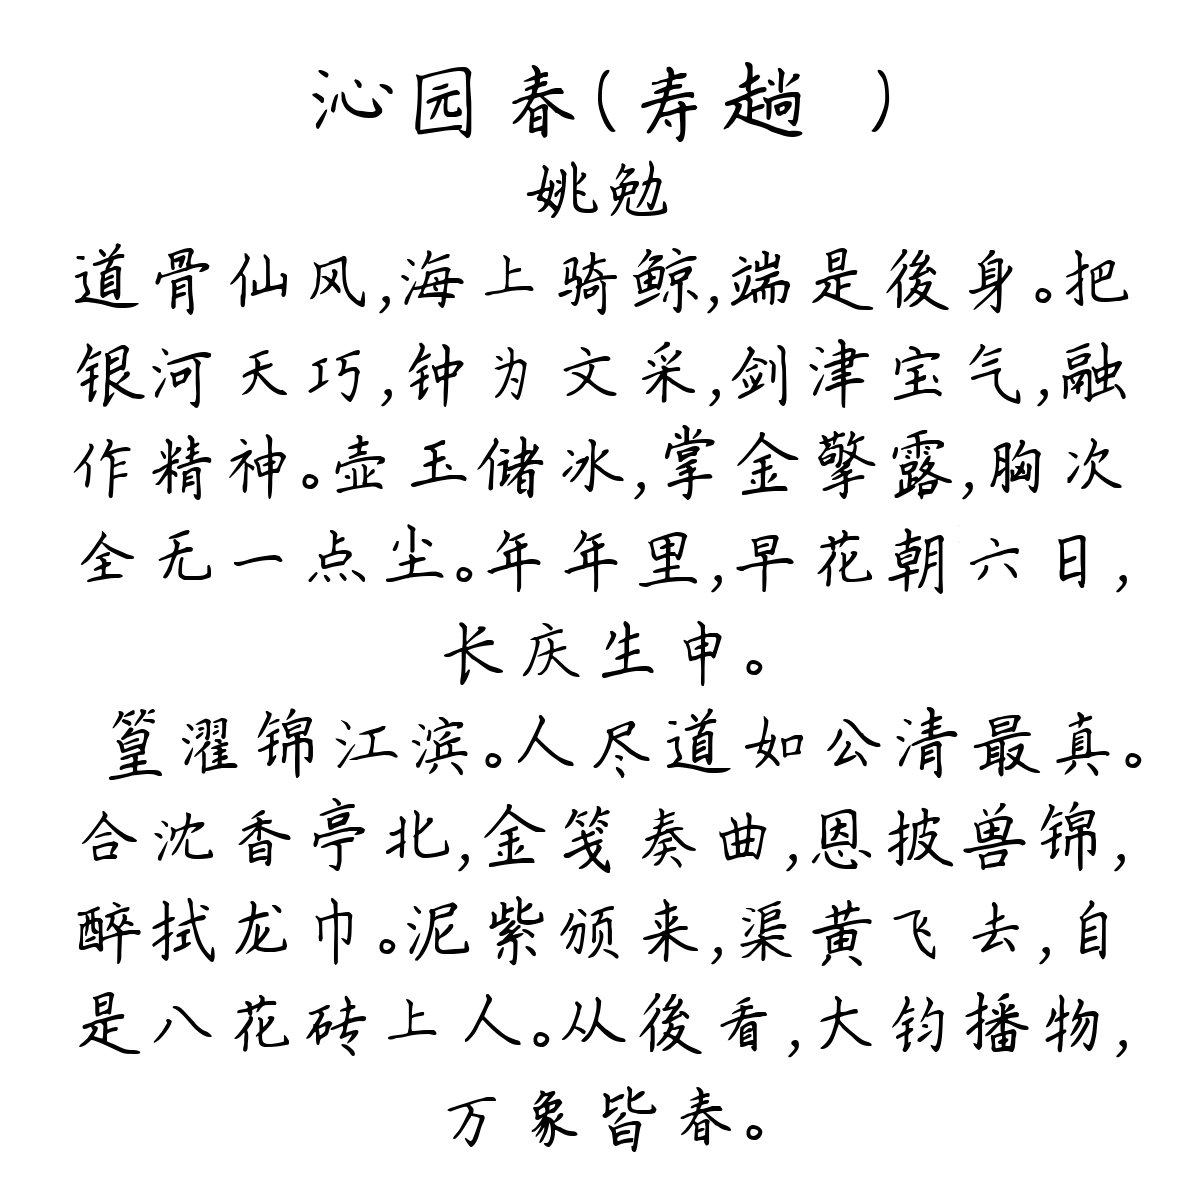 沁园春(寿趟 )
姚勉
道骨仙风,海上骑鲸,端是後身。把
银河天巧,钟为文采,剑津宝气,融
作精神。壶玉储冰,掌金擎露,胸次
全无一点尘。年年里,早花朝六日,
长庆生申。
篁濯锦江滨。人尽道如公清最真。
合沈香亭北,金笺奏曲,恩披兽锦,
醉拭龙巾。泥紫颁来,渠黄飞去,自
是八花砖上人。从後看,大钧播物,
万象皆春。